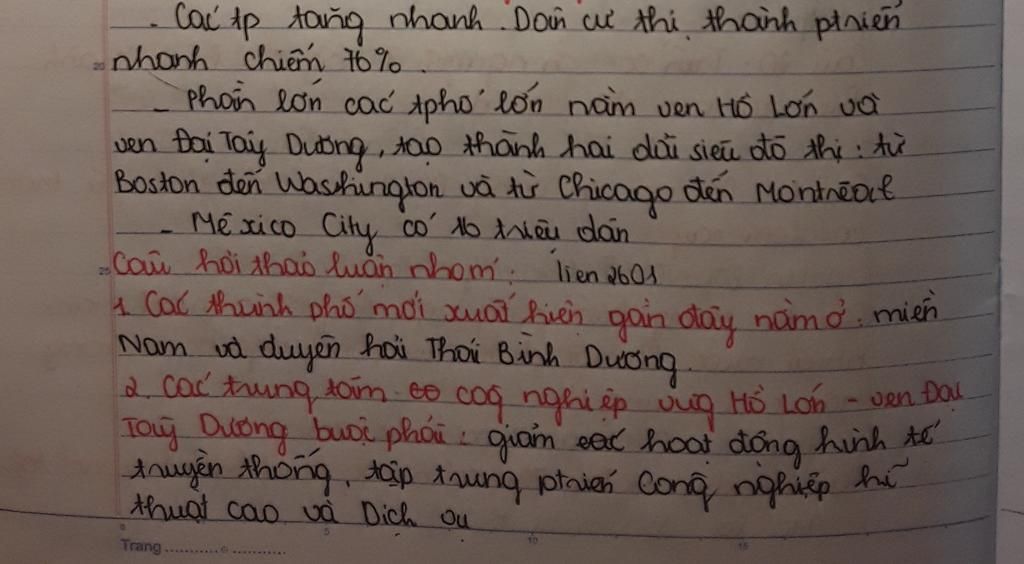 - Các tp tăng nhanh. Dân cư thị thành ptriển
20 nhanh chiếm 76%.
- Phần lớn các tphố lớn nằm ven Hồ Lớn và
ven Đại Tây Dương, tạo thành hai dải siêu đô thị: từ
Boston đến Washington và từ Chicago đến Montréal
- Mêxico City có 16 triệu dân
25 Câu hỏi thảo luận nhóm: lien 2601
1. Các thành phố mới xuất hiện gần đây nằm ở: miền
Nam và duyên hải Thái Bình Dương.
2. Các trung tâm cog nghiệp vùg Hồ Lớn - ven Đại
Tây Dương buộc phải: giảm các hoạt động kinh tế
truyền thống, tập trung ptriển công nghiệp kĩ
thuật cao và Dịch vụ
0 5 10 15
Trang